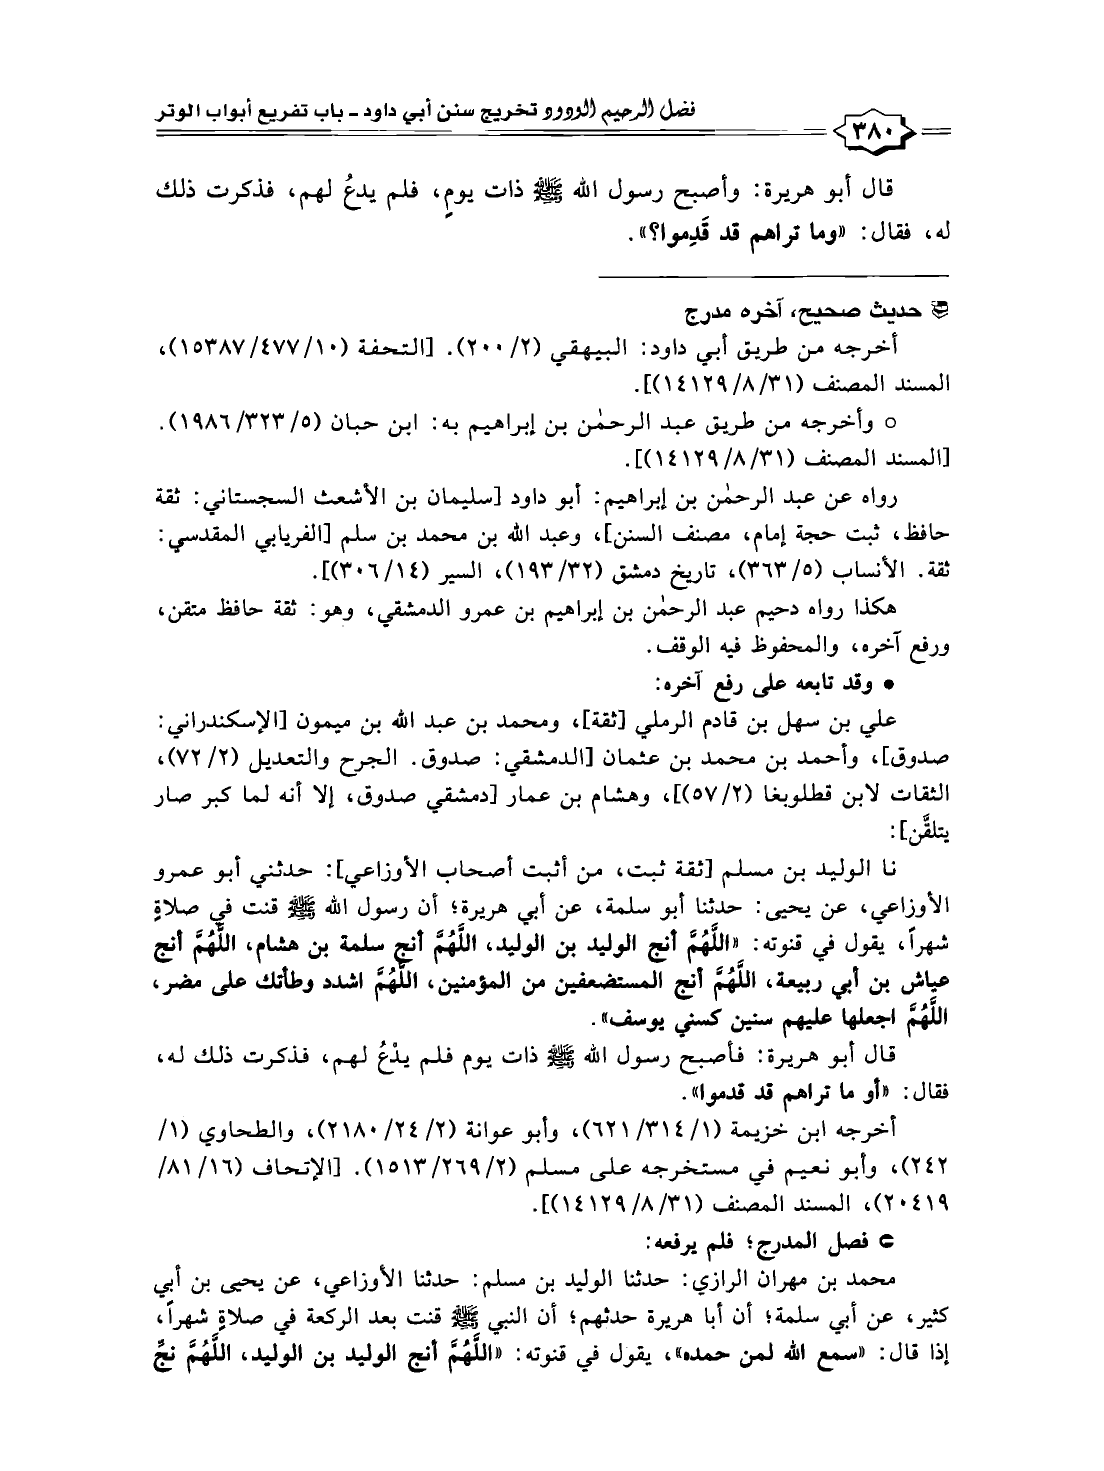 فضل الرحيم الودود تخريج سنن أبي داود - باب تفريع أبواب الوتر
٣٨٠
قال أبو هريرة: وأصبح رسول الله ﷺ ذات يومٍ، فلم يدعُ لهم، فذكرت ذلك
له، فقال: «وما تراهم قد قَدِموا؟».
حديث صحيح، آخره مدرج
أخرجه من طريق أبي داود: البيهقي (٢٠٠/٢). [التحفة (١٥٣٨٧/٤٧٧/١٠)،
المسند المصنف (١٤١٢٩/٨/٣١)].
○ وأخرجه من طريق عبد الرحمٰن بن إبراهيم به: ابن حبان (١٩٨٦/٣٢٣/٥).
[المسند المصنف (١٤١٢٩/٨/٣١)].
رواه عن عبد الرحمٰن بن إبراهيم: أبو داود [سليمان بن الأشعث السجستاني: ثقة
حافظ، ثبت حجة إمام، مصنف السنن]، وعبد الله بن محمد بن سلم [الفريابي المقدسي:
ثقة. الأنساب (٣٦٣/٥)، تاريخ دمشق (١٩٣/٣٢)، السير (٣٠٦/١٤)].
هكذا رواه دحيم عبد الرحمٰن بن إبراهيم بن عمرو الدمشقي، وهو: ثقة حافظ متقن،
ورفع آخره، والمحفوظ فيه الوقف.
• وقد تابعه على رفع آخره:
علي بن سهل بن قادم الرملي [ثقة]، ومحمد بن عبد الله بن ميمون [الإسكندراني:
صدوق]، وأحمد بن محمد بن عثمان [الدمشقي: صدوق. الجرح والتعديل (٧٢/٢)،
الثقات لابن قطلوبغا (٥٧/٢)]، وهشام بن عمار [دمشقي صدوق، إلا أنه لما كبر صار
يتلقَّن]:
نا الوليد بن مسلم [ثقة ثبت، من أثبت أصحاب الأوزاعي]: حدثني أبو عمرو
الأوزاعي، عن يحيى: حدثنا أبو سلمة، عن أبي هريرة؛ أن رسول الله ﷺ قنت في صلاةٍ
شهراً، يقول في قنوته: «اللَّهُمَّ أنج الوليد بن الوليد، اللَّهُمَّ أنج سلمة بن هشام، اللَّهُمَّ أنج
عياش بن أبي ربيعة، اللَّهُمَّ أنج المستضعفين من المؤمنين، اللَّهُمَّ اشدد وطأتك على مضر،
اللَّهُمَّ اجعلها عليهم سنين كسني يوسف».
قال أبو هريرة: فأصبح رسول الله ﷺ ذات يوم فلم يدْعُ لهم، فذكرت ذلك له،
فقال: «أو ما تراهم قد قدموا».
أخرجه ابن خزيمة (٦٢١/٣١٤/١)، وأبو عوانة (٢١٨٠/٢٤/٢)، والطحاوي (١/
٢٤٢)، وأبو نعيم في مستخرجه على مسلم (١٥١٣/٢٦٩/٢). [الإتحاف (٨١/١٦/
٢٠٤١٩)، المسند المصنف (١٤١٢٩/٨/٣١)].
فصل المدرج؛ فلم يرفعه:
محمد بن مهران الرازي: حدثنا الوليد بن مسلم: حدثنا الأوزاعي، عن يحيى بن أبي
كثير، عن أبي سلمة؛ أن أبا هريرة حدثهم؛ أن النبي ﷺ قنت بعد الركعة في صلاةٍ شهراً،
إذا قال: «سمع الله لمن حمده»، يقول في قنوته: «اللَّهُمَّ أنج الوليد بن الوليد، اللَّهُمَّ نجِّ